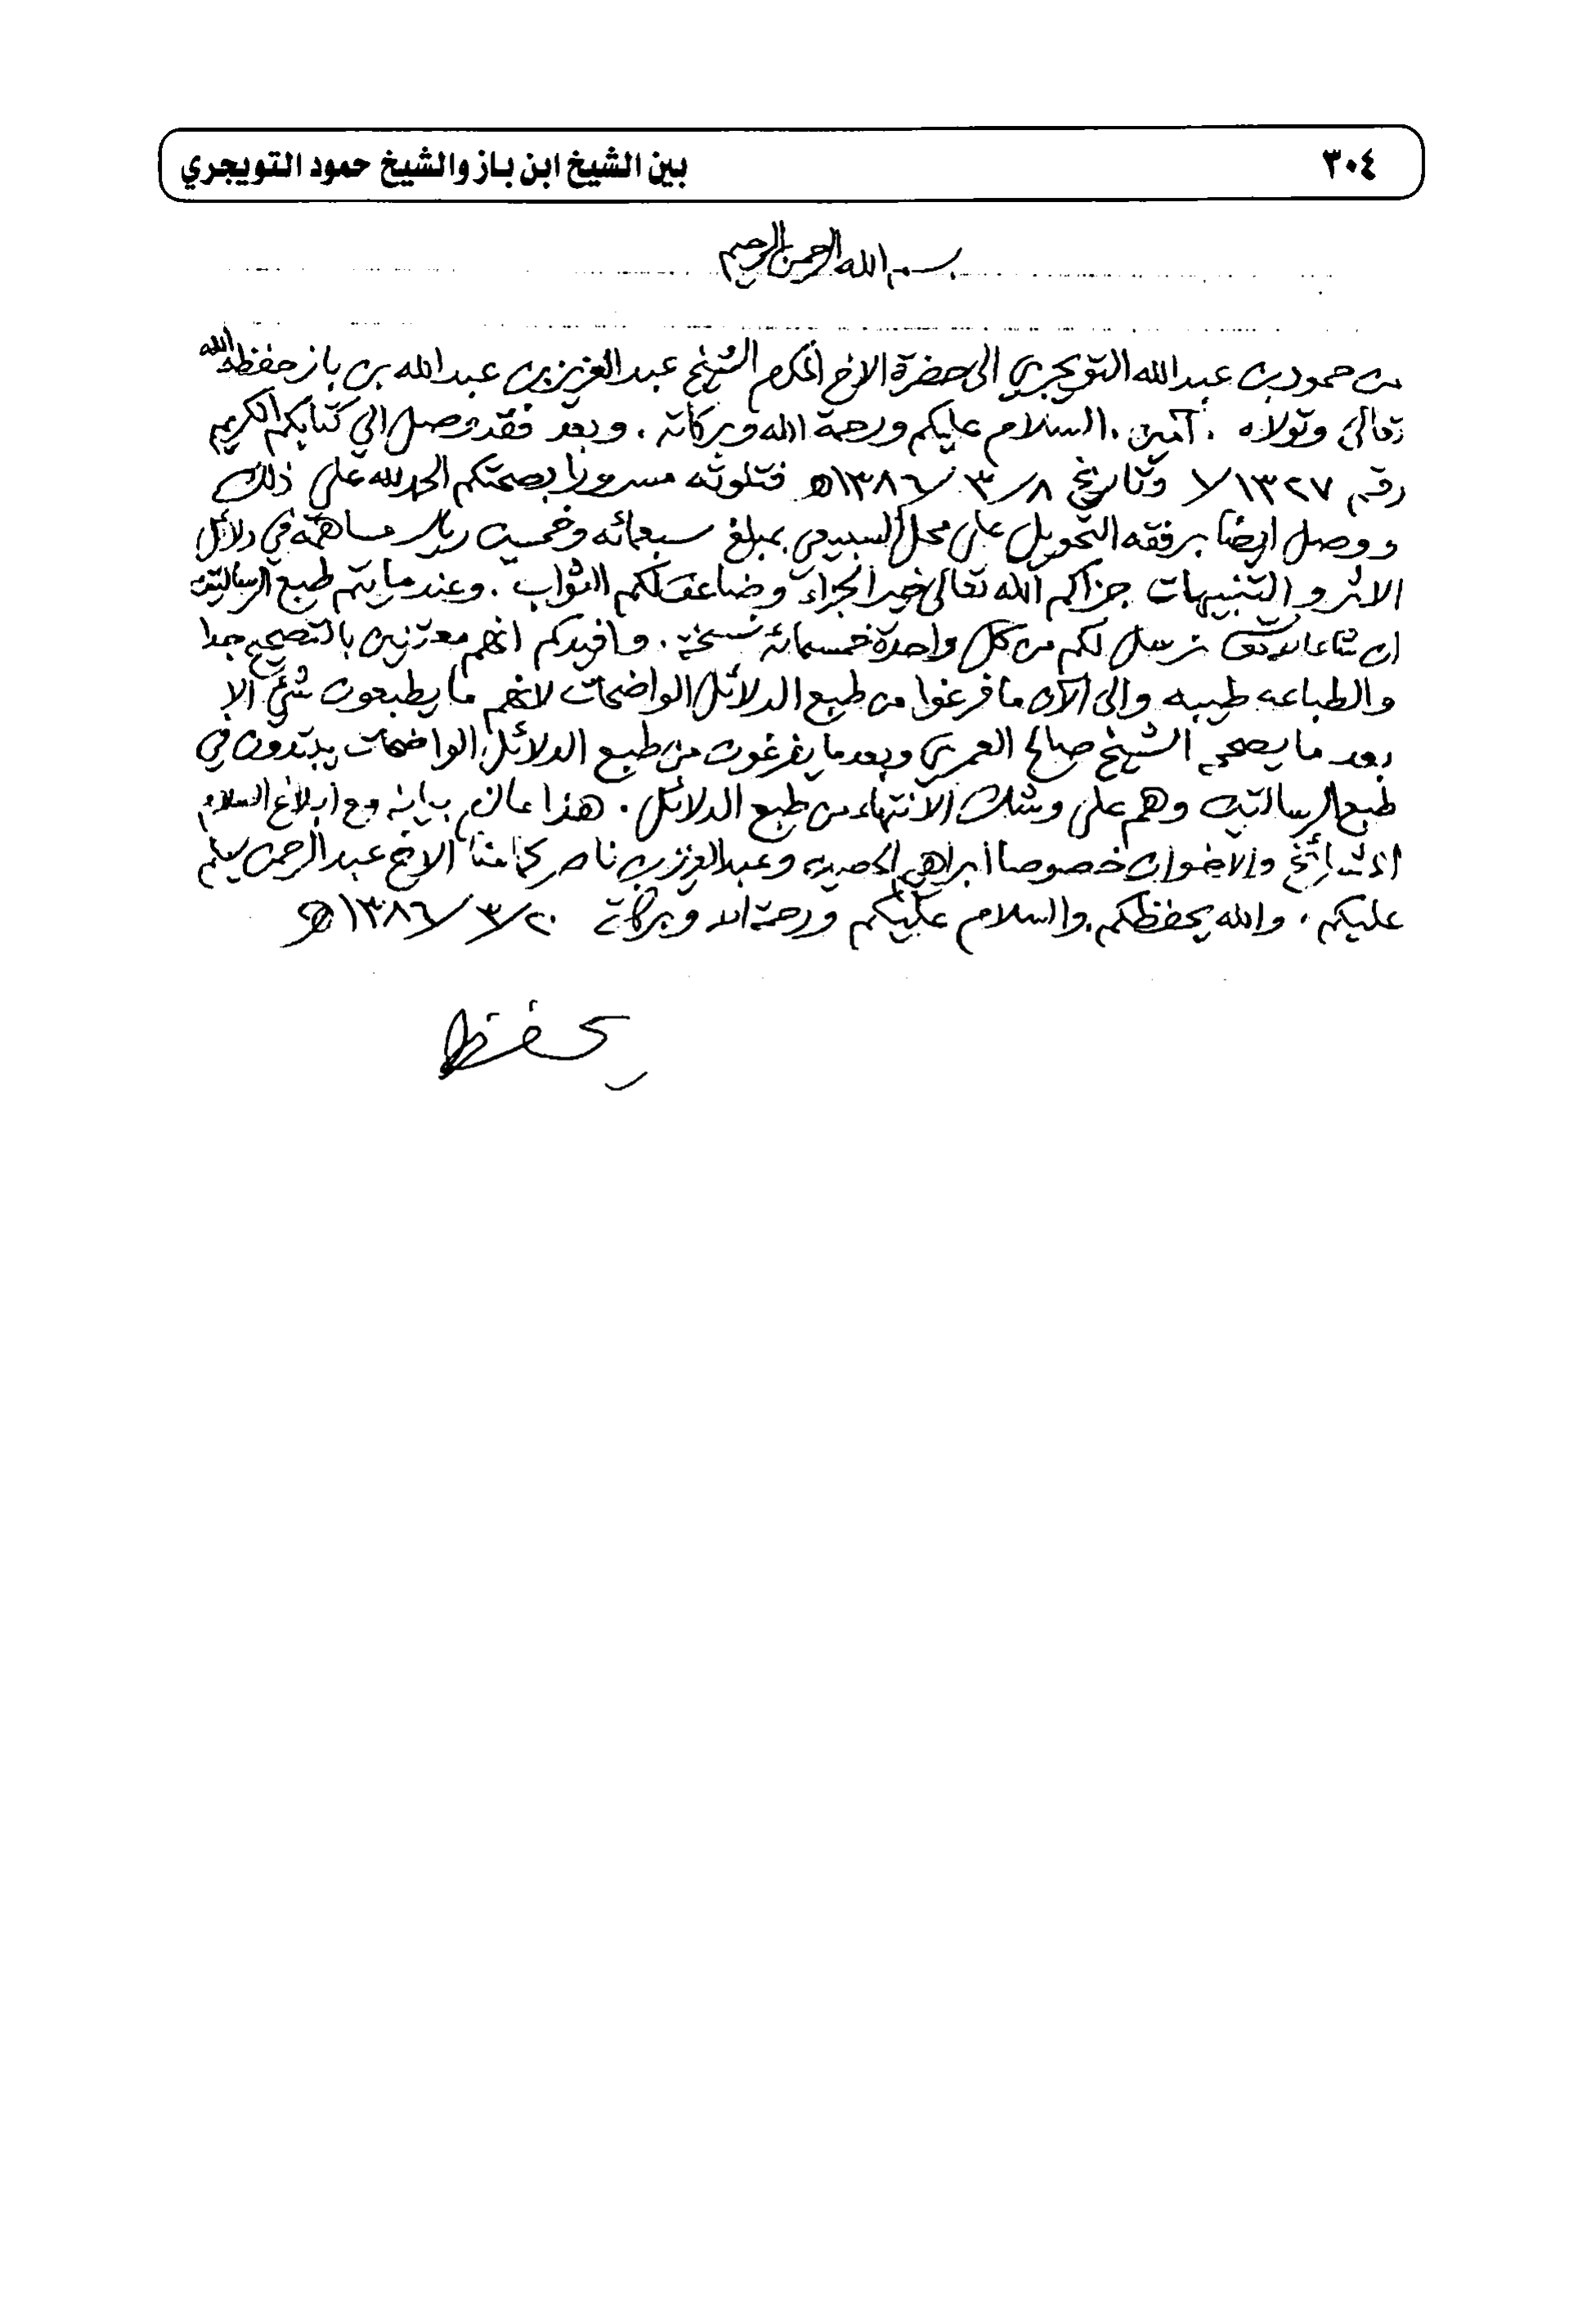 ٣٠٤
بين الشيخ ابن باز والشيخ حمود التويجري
بسم الله الرحمن الرحيم
من حمود بن عبدالله التويجري الى حضرة الاخ المكرم الشيخ عبدالعزيز بن عبدالله بن باز حفظه الله
تعالى وتولاه . آمين . السلام عليكم ورحمة الله وبركاته . وبعد فقد وصل الي كتابكم الكريم
رقم ١٣٢٧/١ وتاريخ ٨/٣/١٣٨٦ه فتلوته مسرورا بصحتكم الحمد لله على ذلك
ووصل ايضا برفقه التحويل على محل السبيعي بمبلغ سبعمائه وخمسين ريال مساهمة في دلائل
الاثر والتنبيهات جزاكم الله تعالى خير الجزاء وضاعف لكم الثواب . وعندما يتم طبع الرسالتين
ان شاء الله نرسل لكم من كل واحدة خمسمائة نسخة . وافيدكم انهم معتنين بالتصحيح جدا
والطباعه طيبه والى الآن ما فرغوا من طبع الدلائل الواضحات لانهم ما يطبعون شئ الا
بعد ما يصححه الشيخ صالح العمري وبعد ما يفرغون من طبع الدلائل الواضحات يبتدون في
طبع الرسالتين وهم على وشك الانتهاء من طبع الدلائل . هذا ما لزم بيانه مع ابلاغ السلام
المشائخ والاخوان خصوصا ابراهيم الحصين وعبدالعزيز بن ناصر كما منا الاخ عبدالرحمن يسلم
عليكم . والله يحفظكم والسلام عليكم ورحمة الله وبركاته ٢٠/٣/١٣٨٦ه
يحفظ